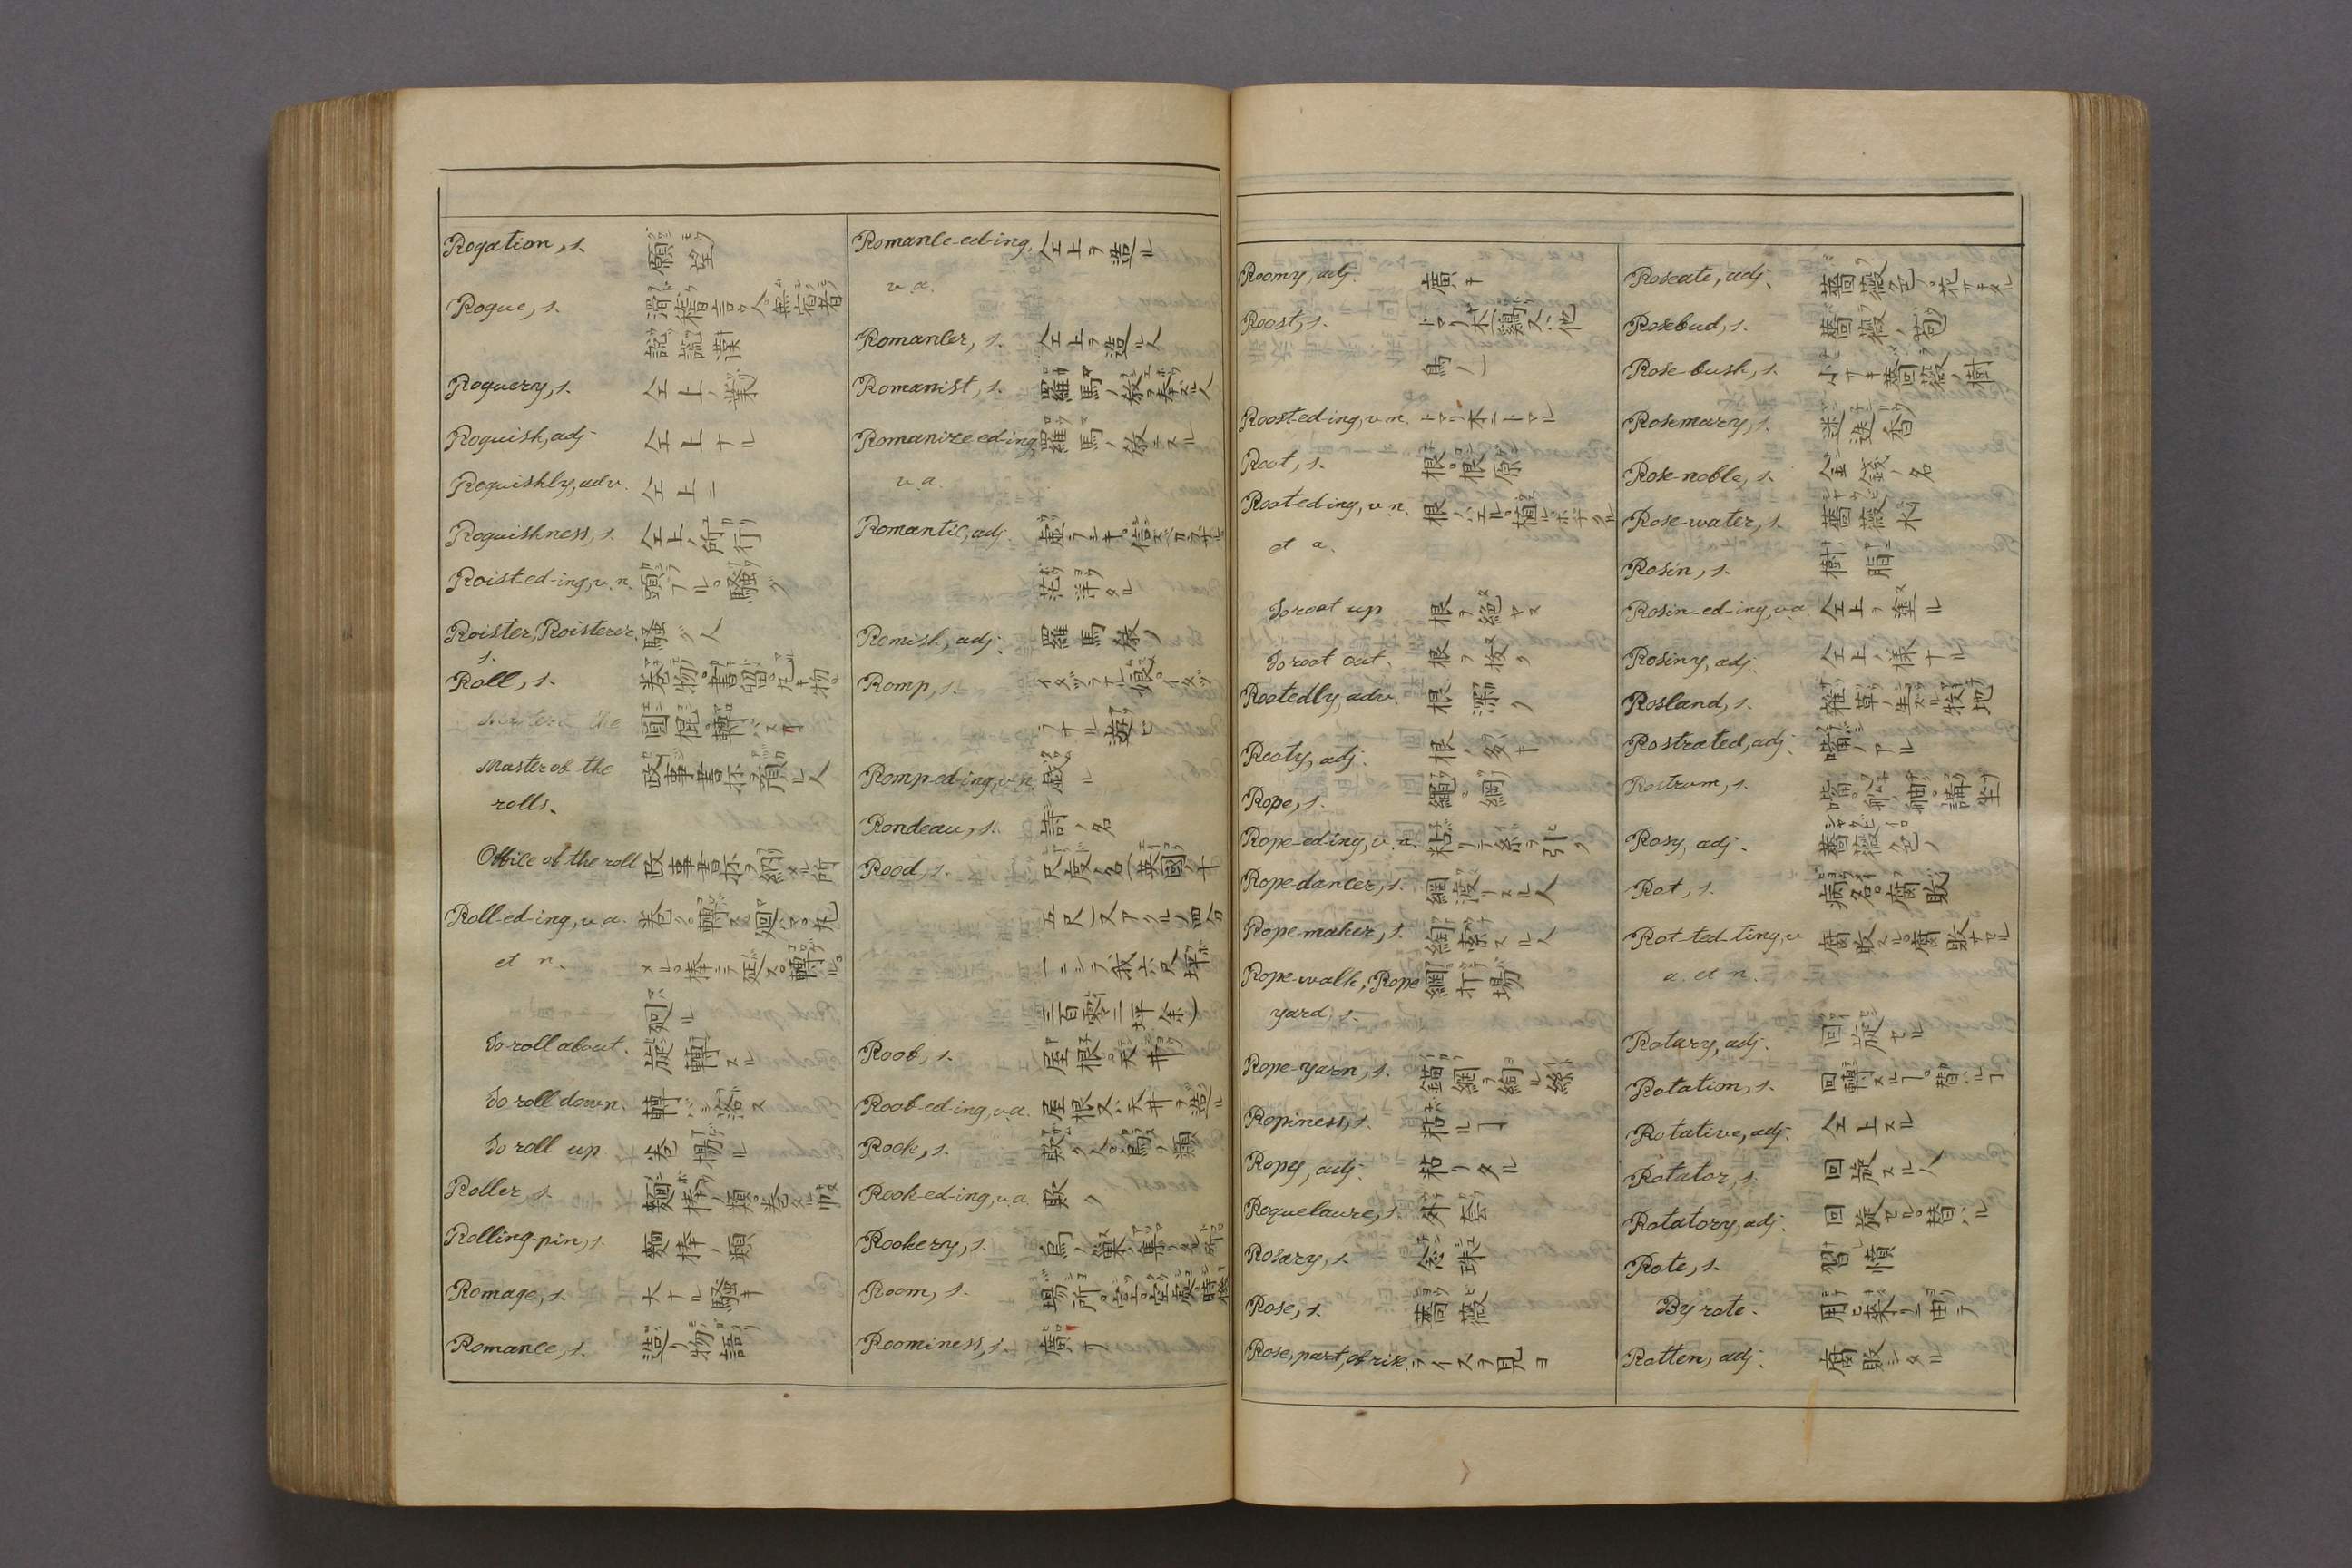 Rogation, s. 願望
Rogue, s. 滑稽言フ人。無宿者
説謊漢
Roguery, s. 仝上ノ業
Roguish, adj 仝上ナル
Roguishly, adv. 仝上ニ
Roguishness, s. 仝上ノ所行
Roist-ed-ing, v. n. 頭フル。騒グ
Roister, Roisterer, 騒グ人
s.
Roll, s. 巻物。書留。丸キ物
圓棍。轉バス
Master of the 政事書抔ヲ預ル人
rolls.
Office of the roll 政事書抔ヲ納メル所
Roll-ed-ing, v. a. 巻ク。轉ス。廻ハス。丸
et n. メル。棒ニテ延ス。轉ゲル。
廻ル
To roll about. 旋轉スル
To roll down. 轉ゲシ落ス
To roll up 巻揚ル
Roller, s. 麺棒ノ類。巻タル巾
Rolling-pin, s. 麺棒ノ類
Romage, s. 大ナル騒キ
Romance, s. 造リ物語
Romance-ed-ing, 仝上ヲ造ル
v. a.
Romancer, s. 仝上ヲ造ル人
Romanist, s. 羅馬ノ教ヲ奉ズル人
Romanize-ed-ing 羅馬ノ教ニスル
v. a.
Romantic, adj.
茫洋タル
Romish, adj. 羅馬教ノ
Romp, s. イタヅラナル娘。イタヅ
ラナル遊ビ
Romp-ed-ing, v. n. 戯ル
Rondeau, s. 詩ノ名
Rood, s. 尺度ノ名(英國ノ十
五尺
一ニシテ我六尺坪
三百零二坪余)
Roof, s. 屋根。天井
Roof-ed-ing, v. a. 屋根又ハ天井ヲ造ル
Rook, s. 欺ク人。烏ノ類
Rook-ed-ing, v. a. 欺ク
Rookery, s. 烏ノ巣ノ集リタル所
Room, s. 場所。室。空處。時機
Roominess, s. 廣サ
Roomy, adj. 廣キ
Roost, s. トマリ木(鷄又ハ他
鳥ノ)
Roost-ed-ing, v. n. トマリ木ニトマル
Root, s. 根。根原
Root-ed-ing, v. n. 根ノハエル。植ル。ホヂクル
et a.
To root up 根ヲ絶ヤス
To root out. 根ヲ抜ク
Rootedly, adv. 根深ク
Rooty, adj. 根ノ多キ
Rope, s. 縄。綱
Rope-ed-ing, v. n. 粘リテ絲ヲ引ク
Rope-dancer, s. 綱渡リスル人
Rope-maker, s. 綯索スル人
Rope-walk, Rope 綱打場
yard, s.
Rope-yarn, s. 錨綱ヲ綯ル絲
Ropiness, s. 粘ルヿ
Ropy, adj. 粘リタル
Roquelaure, s. 外套
Rosary, s. 念珠
Rose, s. 薔薇
Rose, part, of rise. ライスヲ見ヨ
Roseate, adj. 薔薇色ノ。花サキタル
Rosebud, s. 薔薇ノ莟
Rose-bush, s. 小サキ薔薇ノ樹
Rosemary, s. 迷迭香
Rose-noble, s. 金錢ノ名
Rose-water, s. 薔薇水
Rosin, s. 樹脂
Rosin-ed-ing, v. a. 仝上ヲ塗ル
Rosiny, adj. 仝上ノ樣ナル
Rosland, s. 雜草ノ生ズル牧地
Rostrated, adj. 嘴ノアル
Rostrum, s. 嘴。舳。講坐
Rosy, adj. 薔薇色ノ
Rot, s. 病名。腐敗
Rot-ted-ting, v. 腐敗スル。腐敗サセル
a. et n.
Rotary, adj. 回旋セル
Rotation, s. 回轉スルヿ。替ハルヿ
Rotative, adj. 仝上スル
Rotator, s. 回旋スル人
Rotatory, adj. 回旋セル。替ハル
Rote, s. 習慣
By rote. 用ヒ來リニ由テ
Rotten, adj. 腐敗シタル